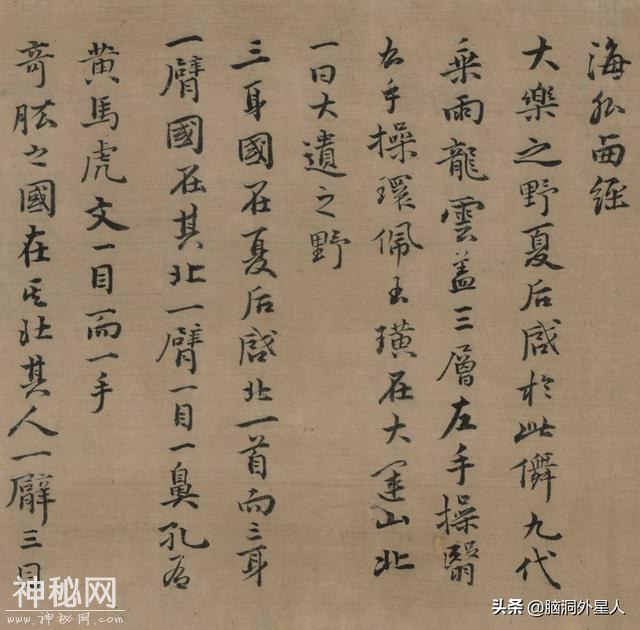 海外西經
大樂之野夏后啟於此儛九代
乘兩龍雲蓋三層左手操翳
右手操環佩玉璜在大運山北
一曰大遺之野
三身國在夏后啟北一首而三身
一臂國在其北一臂一目一鼻孔有
黃馬虎文一目而一手
奇肱之國在其北其人一臂三目
神秘网
www.神秘网.com
头条 @脑洞外星人